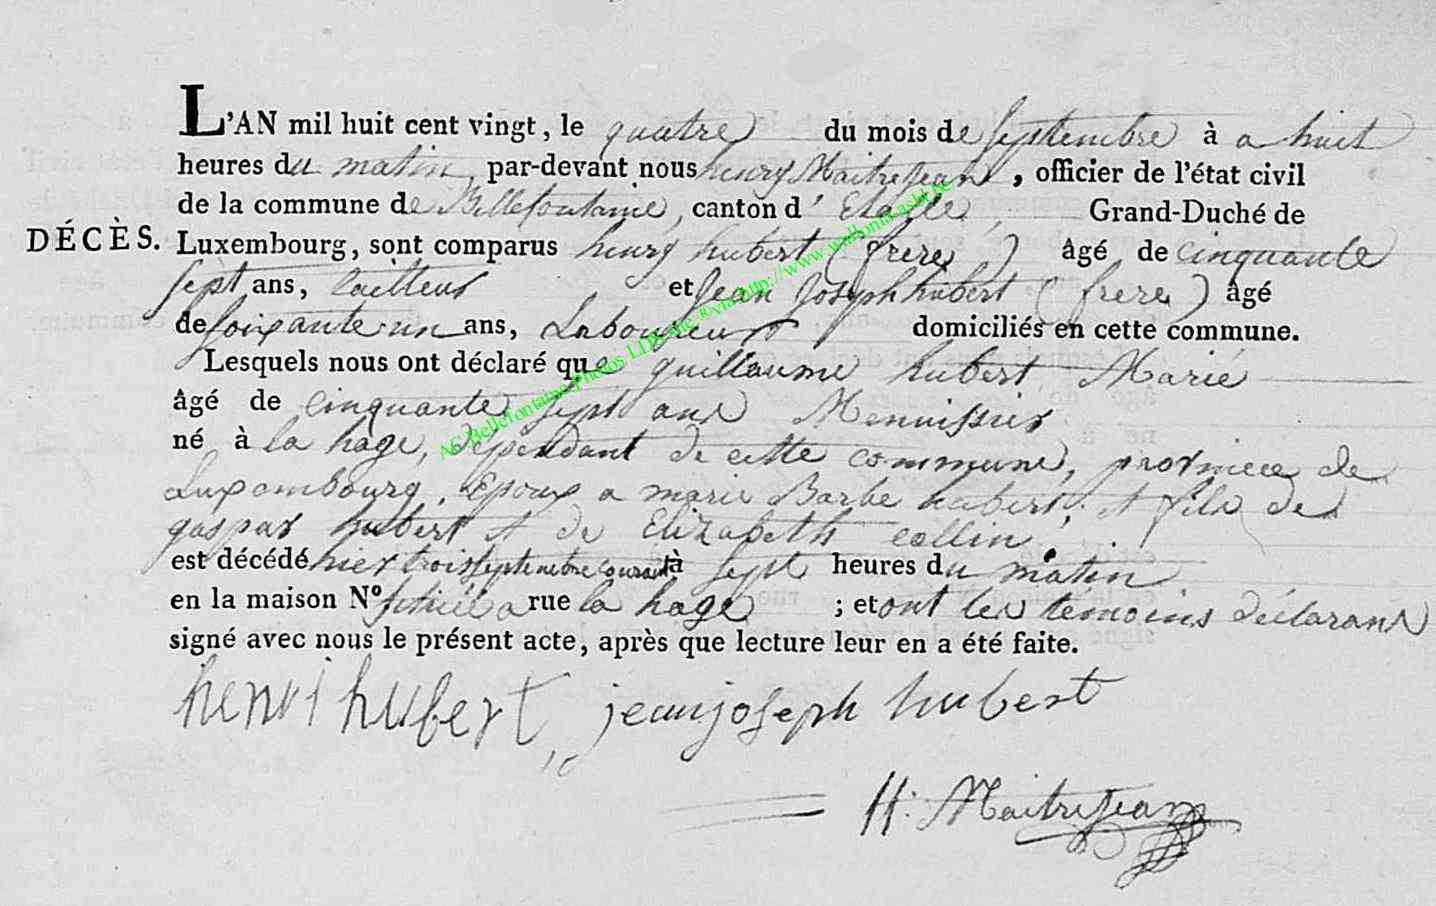 L'AN mil huit cent vingt, le quatre du mois de Septembre à a huit
heures du matin, par-devant nous henry Maitrejean, officier de l'état civil
de la commune de Bellefontaine, canton d' Etalle, Grand-Duché de
DÉCÈS. Luxembourg, sont comparus henry hubert (frere) âgé de cinquante
sept ans, tailleur et Jean Joseph hubert (frere) âgé
de soixante un ans, Laboureur domiciliés en cette commune.
Lesquels nous ont déclaré que guillaume hubert Marié
âgé de cinquante sept ans Menuissier
né à la hage, dependant de cette commune, province de
Luxembourg, Epoux a marie Barbe hubert, et fils de
gaspar hubert et de Elizabeth collin.
est décédé hier trois septembre courant à sept heures du matin
en la maison N° située a rue la hage ; et ont les temoins déclarans
signé avec nous le présent acte, après que lecture leur en a été faite.
henri hubert, jean joseph hubert
H. Maitrejean
AC Bellefontaine Photos LDPedic ® via http://www.wallonia.asbl.be